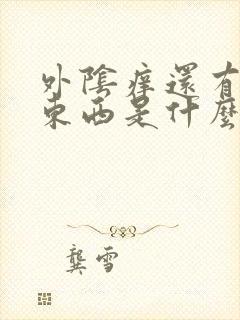 外陰痒還有
東西是什麼
龔雪